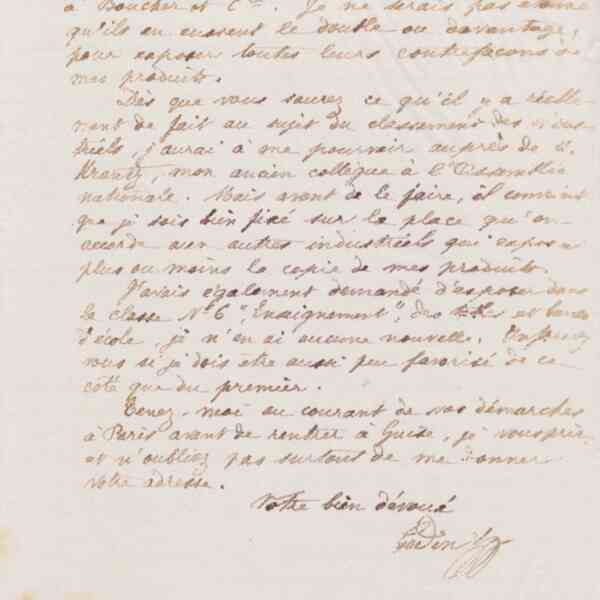 à Boucher et Cie. Je ne serais pas étonné
qu'ils en eussent le double ou davantage,
pour exposer toutes leurs contrefaçons de
mes produits.
Dès que vous saurez ce qu'il y a réelle-
ment de fait au sujet du classement des indus-
triels, j'aurai à me pourvoir auprès de M.
Krantz, mon ancien collègue à l'Assemblée
nationale. Mais avant de le faire, il convient
que je sois bien fixé sur la place qu'on
accorde aux autres industriels qui exposent
plus ou moins la copie de mes produits.
J'avais également demandé d'exposer dans
la classe No 6 "Enseignement", des tables et bancs
d'école, je n'en ai aucune nouvelle.
vous si je dois être aussi peu favorisé de ce
côté que du premier.
Tenez-moi au courant de vos démarches
à Paris avant de rentrer à Guise, je vous prie,
et n'oubliez pas surtout de me donner
votre adresse.
Votre bien dévoué
Godin